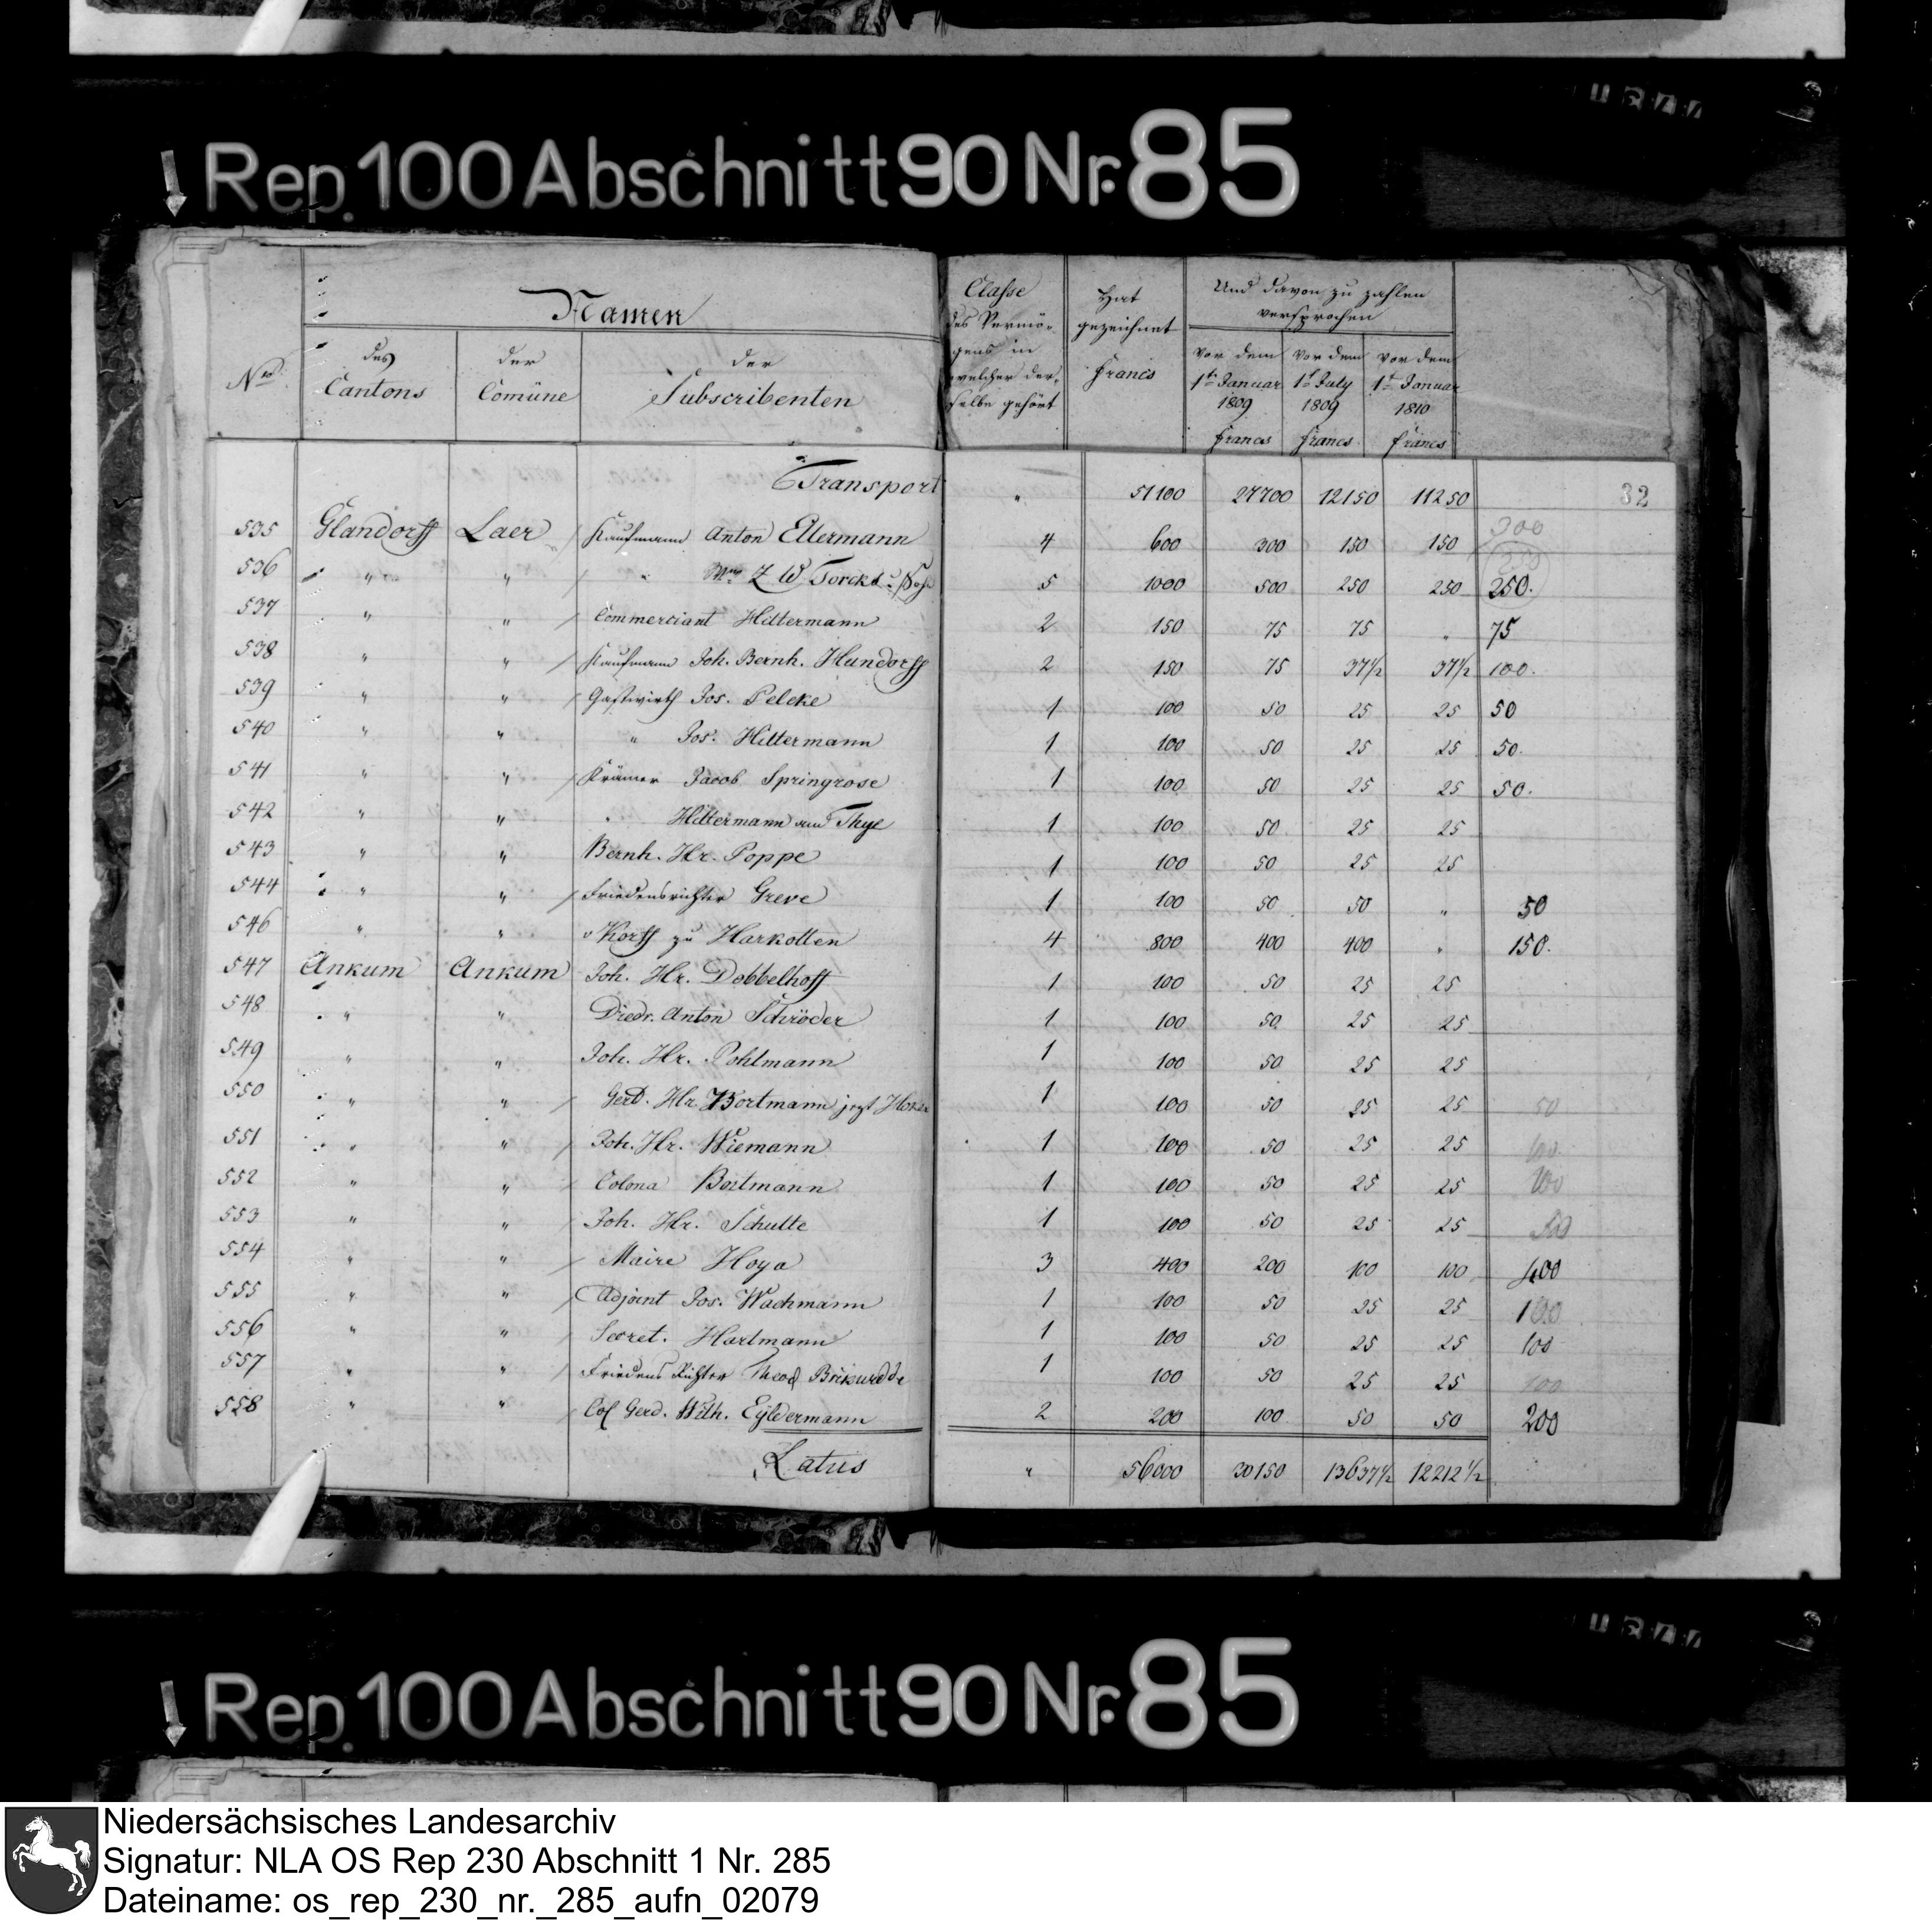 Rep. 100 Abschnitt 90 Nr. 85
Namen
Nro. des Cantons der Comüne der Subscribenten Classe des Vermögens in welcher derselbe gehört Hat gezeichnet Francs Und davon zu zahlen versprochen
vor dem 1t Januar 1809 Francs vor dem 1t July 1809 Francs vor dem 1t Januar 1810 Francs
Transport " 51100 27700 12150 11250 32
535 Glandorff Laer Kaufmann Anton Ellermann 4 600 300 150 150 300
536 " " " Z W 5 1000 500 250 250 250.
537 " " Commerciant Hiltermann 2 150 75 75 " 75
538 " " Kaufmann Joh. Bernh. Hundorff 2 150 75 37½ 37½ 100.
539 " " Gastwirth Jos. Pelcke 1 100 50 25 25 50
540 " " " Jos. Hiltermann 1 100 50 25 25 50.
541 " " Krämer Jacob Springrose 1 100 50 25 25 50.
542 " " " Hiltermann und Thye 1 100 50 25 25
543 " " Bernh. Hr. Poppe 1 100 50 25 25
544 " " Friedensrichter Greve 1 100 50 50 " 50
546 " " v Korff zu Harkotten 4 800 400 400 " 150.
547 Ankum Ankum Joh. Hr. Dobbelhoff 1 100 50 25 25
548 " " Diedr. Anton Schröder 1 100 50 25 25
549 " " Joh. Hr. Pohlmann 1 100 50 25 25
550 " " Gerd. Hr. Wortmann jezt 1 100 50 25 25 50
551 " " Joh. Hr. Wiemann 1 100 50 25 25 100.
552 " " Colona Bortmann 1 100 50 25 25
553 " " Joh. Hr. Schulte 1 100 50 25 25
554 " " Maire Hoya 3 400 200 100 100 400
555 " " Adjoint Jos. Wachmann 1 100 50 25 25 100
556 " " Secret. Hartmann 1 100 50 25 25 100
557 " " Friedens Richter Theod 1 100 50 25 25 100
558 " " Col Gerd. Wilh. Eyldermann 2 200 100 50 50 200
Latus " 56000 30150 13637½ 12212½
Rep. 100 Abschnitt 90 Nr. 85
Niedersächsisches Landesarchiv
Signatur: NLA OS Rep 230 Abschnitt 1 Nr. 285
Dateiname: os_rep_230_nr._285_aufn_02079